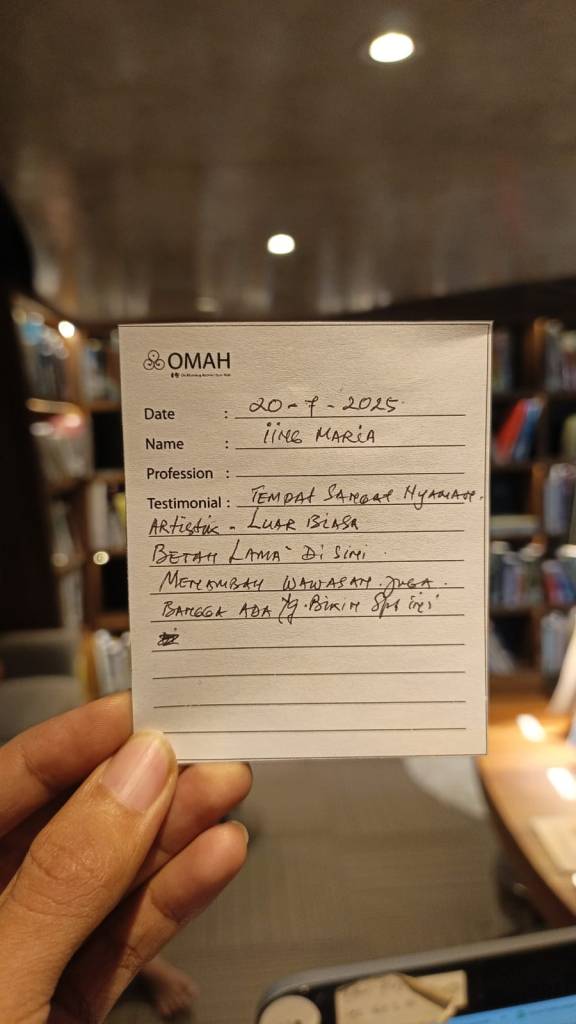 OMAH
Date : 20-7-2025
Name : iiNG MARIA
Profession :
Testimonial : TEMPAT SANGAT NYAMAN.
ARTistik - LUAR BIASA
BETAH LAMA² Di SiNi.
MENAMBAH WAWASAN JUGA.
BANGGA ADA Yg. BIKIN Spt iNi